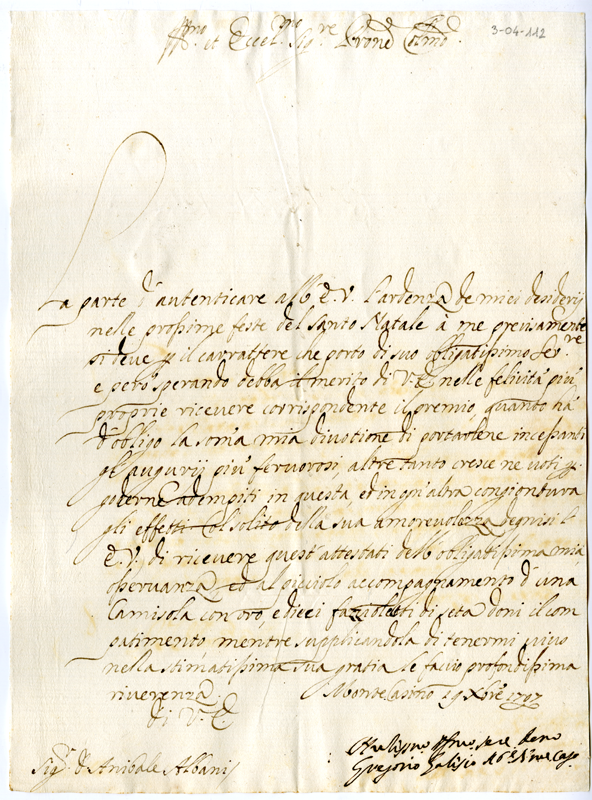 3-04-112
Ill.mo et Eccel.mo Sig.re Prone Colmo
La parte d'autenticare all'E.V. l'ardenza de miei desiderij
nelle prossime feste del Santo Natale à me precisamente
si deve p il carrattere che porto di suo obligatissimo Ser.re
e però sperando debba il merito di V.E. nelle felicità più
proprie ricevere corrispondente il premio, quanto hà
d'obligo la somma mia divotione di portarlene incessanti
gl'augurij più fervorosi, altre tanto cresce ne voti p
poterne adempiti in questa ed in ogn'altra congiontura
gli effetti al solito della sua amorevolezza degnisi l'
E.V. di ricevere quest'attestati dell'obligatissima mia
osservanza, ed al picciolo accompagnamento d'una
Camisola con oro, e dieci fazzoletti di seta doni il com
patimento mentre supplicandola di tenermi vivo
nella stimatissima sua gratia le faccio profondissima
riverenza Monte Casino 19 Xbre 1707
di V.E.
Sig.r D. Anibale Albani
Gregorio Galisio